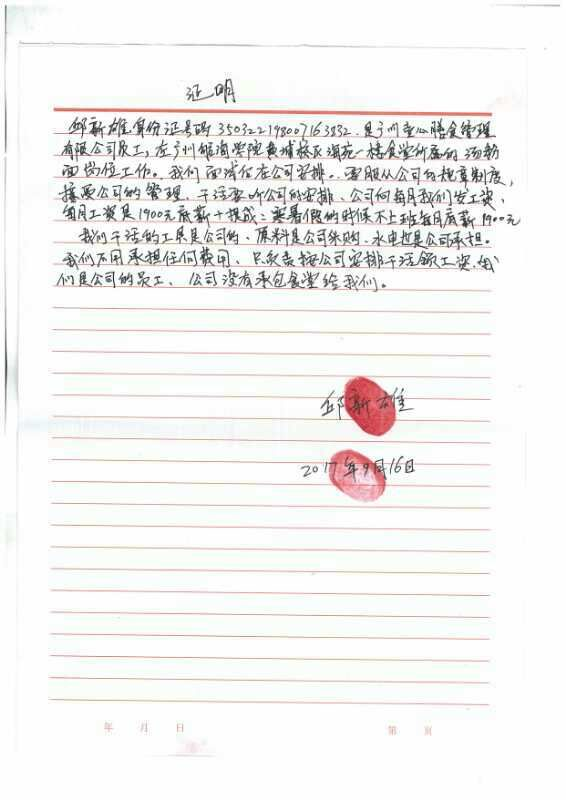 证明
邱新雄身份证号码 350322198007163832. 是广州童心膳食管理
有限公司员工，在广州航海学院黄埔校区海苑一楼食堂的汤粉
面岗位工作。我们面试位在公司安排。要服从公司的规章制度，
接受公司的管理、干活要听公司的安排、公司向每月我们发工资、
每月工资是1900元底薪＋提成；寒暑假的时候不上班每月底薪1900元
我们干活的工具是公司的、原料是公司采购、水电也是公司承担。
我们不用承担任何费用、只负责按公司安排干活领工资、我
们是公司的员工、公司没有承包食堂给我们。
邱新雄
2017年9月16日
年 月 日 第 页